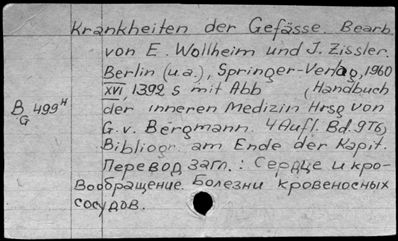 Krankheiten der Gefässe. Bearb.
von E. Wollheim und J. Zissler.
Berlin (u.a.), Springer-Verlag, 1960
XVI, 1392 S mit Abb (Handbuch
B/G 499н der inneren Medizin Hrsg von
G. v. Bergmann. 4 Aufl. Bd. 9T6)
Bibliogr. am Ende der Kapit.
Перевод загл.: Сердце и кро-
вообращение. Болезни кровеносных
сосудов.